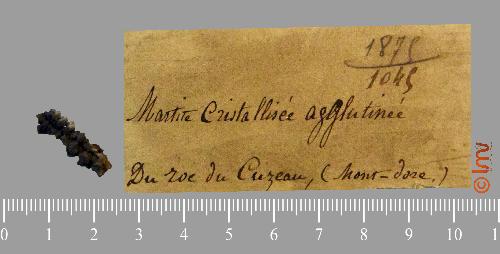 1875
1045
Martite Cristallisée agglutinée
Du roc du Cuzeau, (Mont-dore.)
© lmv
0 1 2 3 4 5 6 7 8 9 10 1